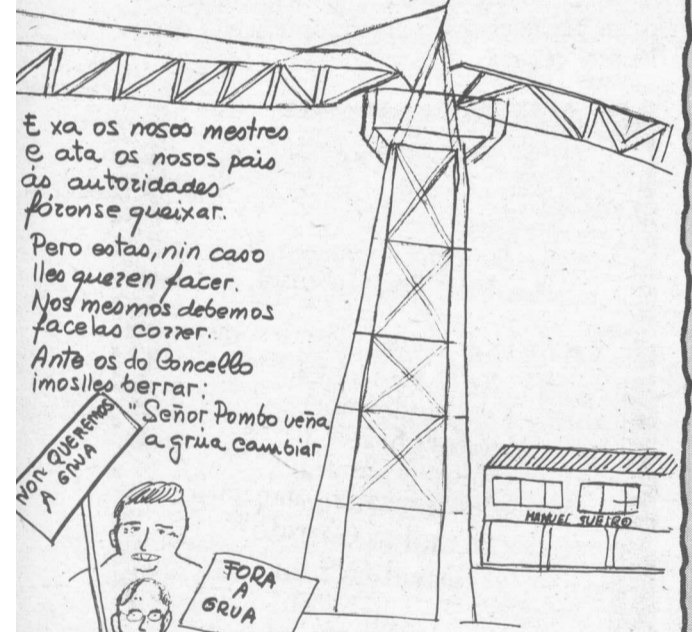 E xa os nosos mestres
e ata os nosos pais
ás autoridades
fóronse queixar.
Pero estas, nin caso
lles queren facer.
Nos mesmos debemos
facelas correr.
Ante os do Concello
imoslles berrar:
"Señor Pombo veña
a grúa cambiar
NON QUEREMOS
A GRUA
FORA
A
GRUA
MANUEL SUEIRO